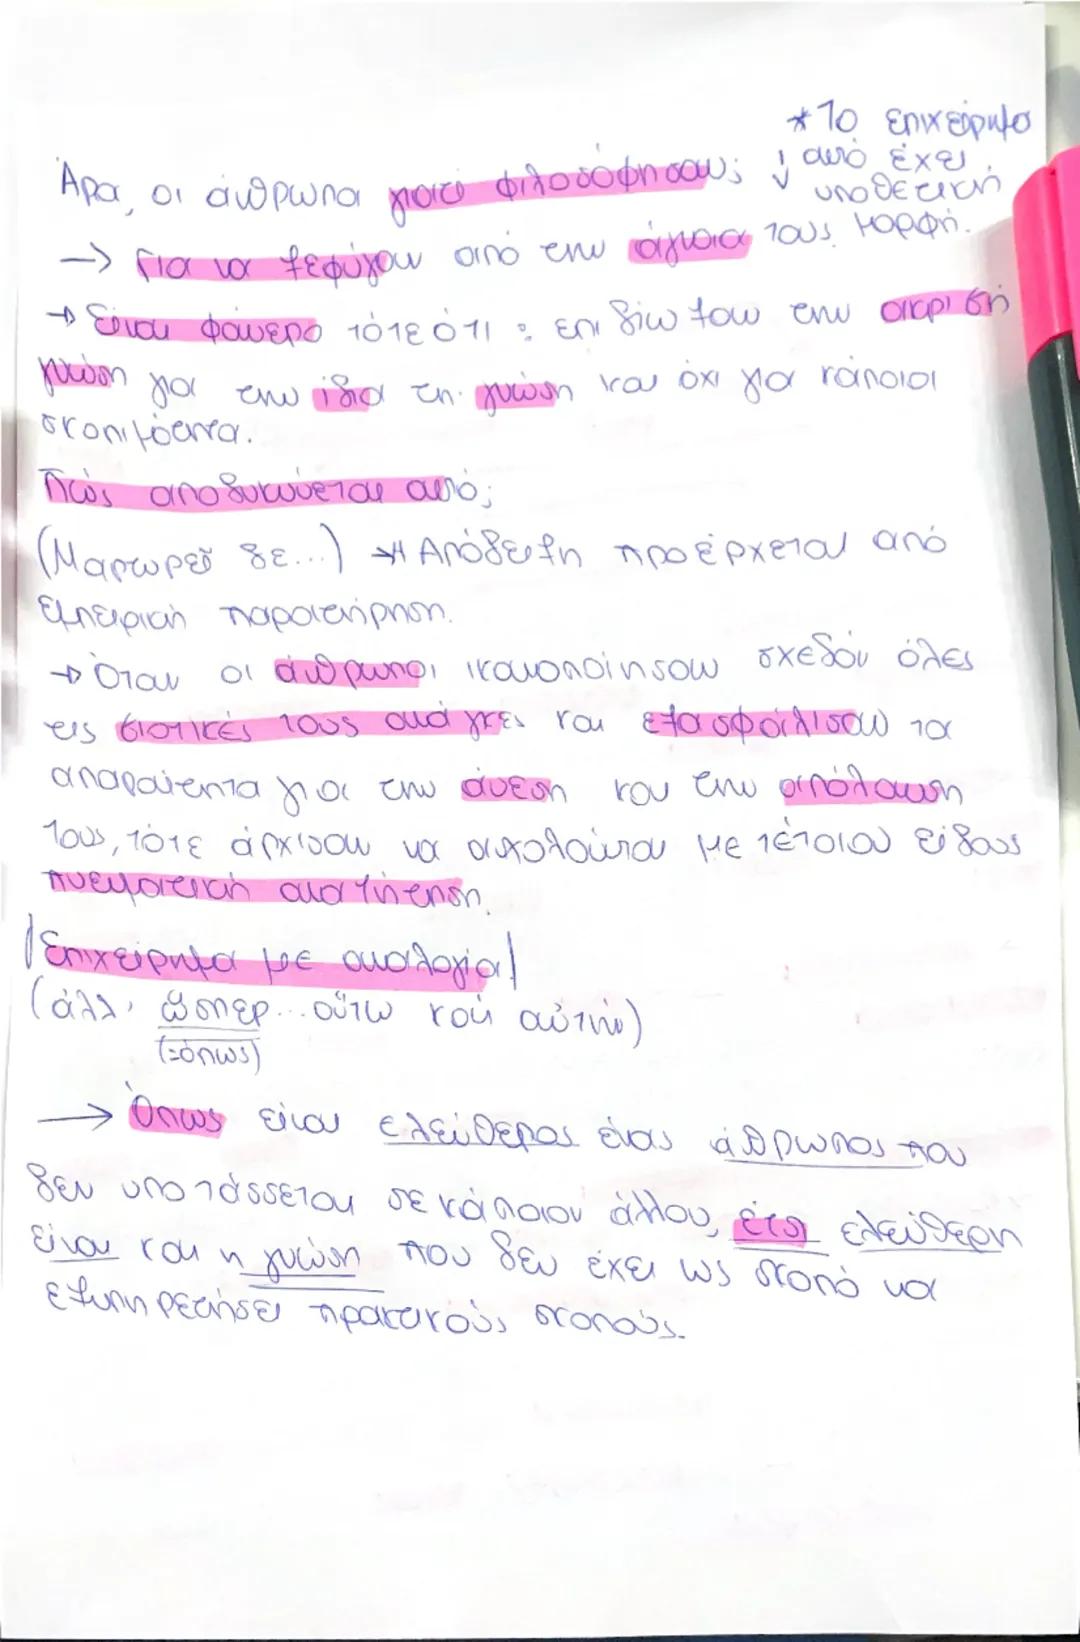 *Το επιχείρημα
αυτό έχει
υποθετική
μορφή.
Άρα, οι άνθρωποι γιατί φιλοσόφησαν; ↓
→ Για να ξεφύγουν από την άγνοια τους.
→ Είναι φανερό τότε ότι: επιδίωξαν την ακριβή
γνώση για την ίδια τη γνώση και όχι για κάποιοι
σκοπιμότητα.
Πώς αποδεικνύεται αυτό;
(Μαρτυρεῖ δε...) → Η Απόδειξη προέρχεται από
εμπειρική παρατήρηση.
→ Όταν οι άνθρωποι ικανοποίησαν σχεδόν όλες
τις βιοτικές τους ανάγκες και εξασφάλισαν τα
απαραίτητα για την άνεση και την απόλαυση
τους, τότε άρχισαν να ασχολούνται με τέτοιου είδους
πνευματική αναζήτηση.
|Επιχείρημα με αναλογία|
(ἀλλ' ὥσπερ...οὕτω καὶ αὐτήν)
(=όπως)
→ Όπως είναι ελεύθερος ένας άνθρωπος που
δεν υποτάσσεται σε κάποιον άλλον, έτσι ελεύθερη
είναι και η γνώση που δεν έχει ως σκοπό να
εξυπηρετήσει πρακτικούς σκοπούς.